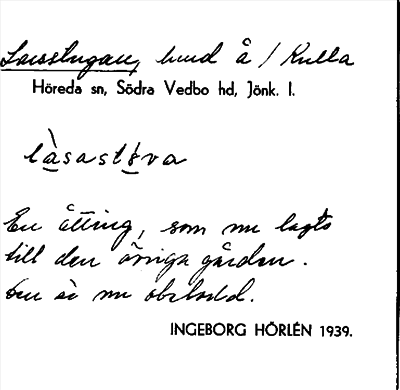 Lassstugan, hmd å / Kulla
Höreda sn, Södra Vedbo hd, Jönk. l.
làsastøva
En åtting, som nu lagts
till den övriga gården.
Den är nu obebodd.
INGEBORG HÖRLÉN 1939.